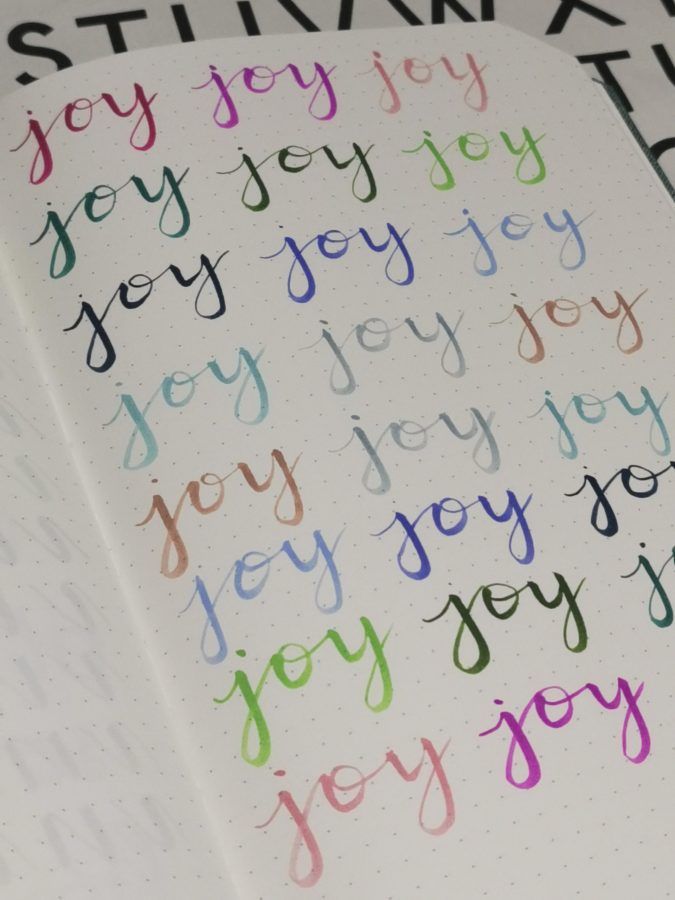 STUVWX
joy joy joy
joy joy joy
joy joy joy
joy joy joy
joy joy joy
joy joy joy
joy joy
joy joy